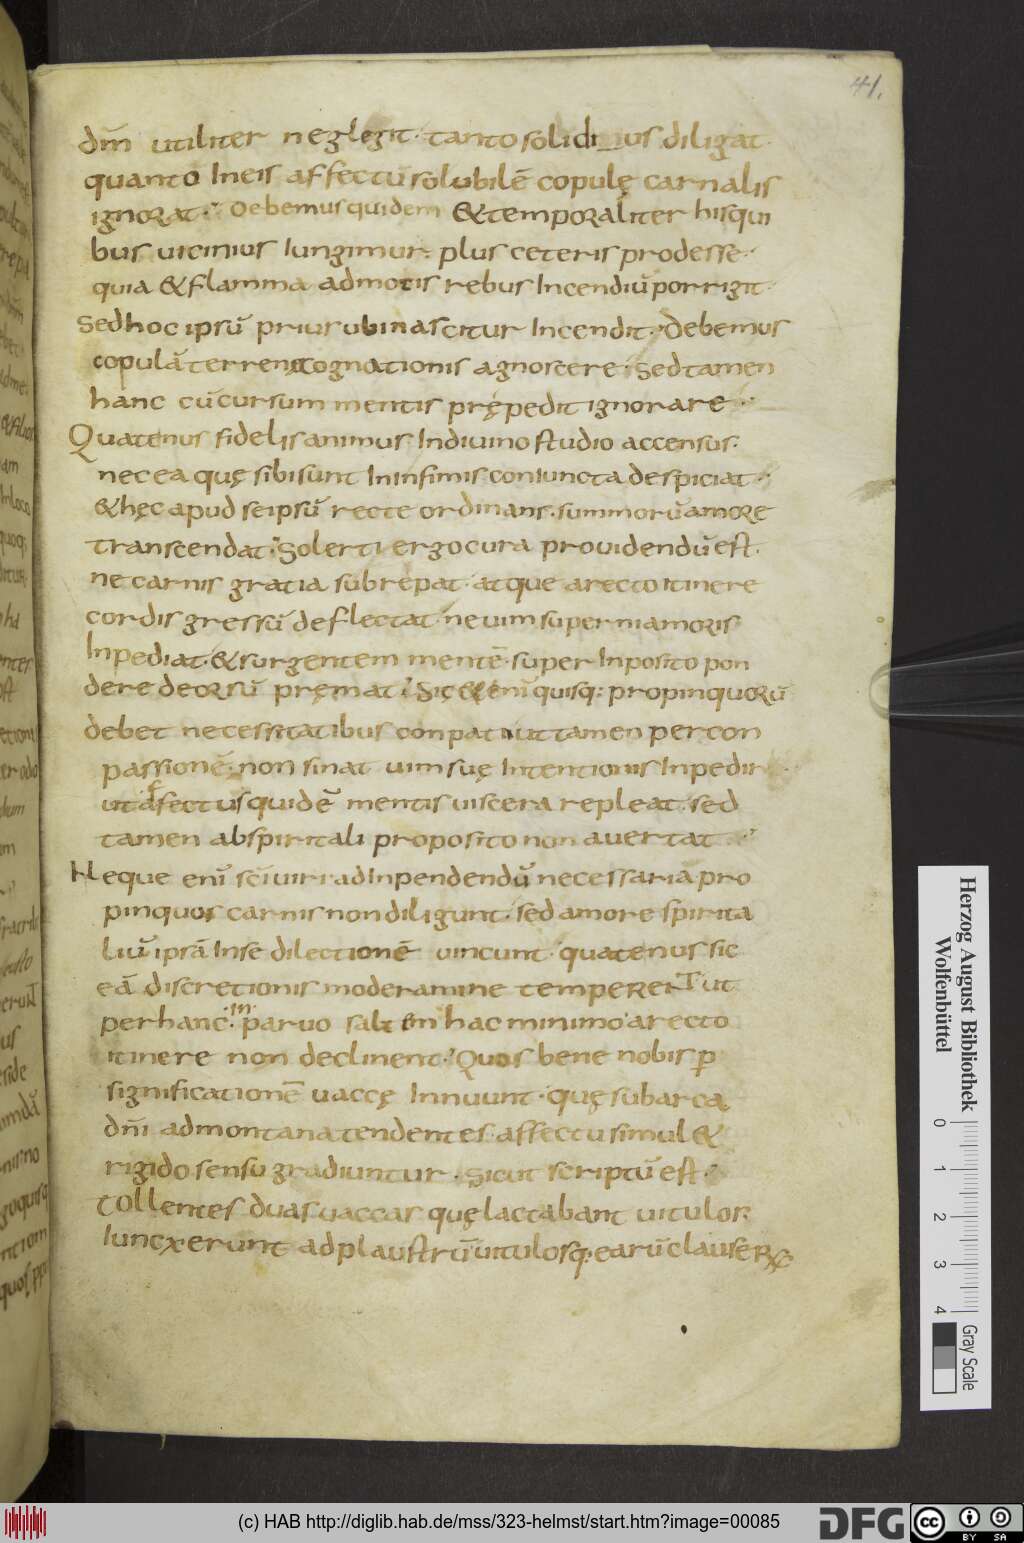 41.
dm̄ utiliter neglegit· tanto solidius diligat·
quanto Ineis affectū solubilē copulę carnalis
ignorat· Debemus quidem &temporaliter hisqui
bus uicinius Iungimur· plus ceteris prodesse·
quia &flamma admotis rebus Incendiū porrigit·
Sedhoc ipsū prius ubinascitur Incendit· Debemus
copulā terrenę cognationis agnoscere· Sedtamen
hanc cū cursum mentis prępedit ignorare·
Quatenus fidelis animus Indiuino studio accensus·
necea quę sibi sunt Ininfimis coniuncta despiciat·
&hęc apud seipsū recte ordinans· summorū amore
transcendat· Solerti ergo cura prouidendū est·
ne carnis gratia subrepat· atque arecto itinere
cordis gressū deflectat· neuim superni amoris
Inpediat· &surgentem mentē super Inposito pon
dere deorsū pręmat· Sic enī quisq; propinquorū
debet necessitatibus conpati ut tamen percon
passionē· non sinat uim suę Intentionis Inpedir
ut affectus quidē mentis uiscera repleat· sed
tamen abspiritali proposito non auertat·
Neque enī sc̄i uiri adInpendendū necessaria pro
pinquos carnis non diligunt· sed amore spirita
liū ipsā Inse dilectionē uincunt· quatenus sic
eā discretionis moderamine temperent ut
perhanc· In paruo saltem hac minimo arecto
itinere non declinent· Quos bene nobis p
significationē uaccę Innuunt· quę subarca
dn̄i admontana tendentes· affectu simul &
rigido sensu gradiuntur· Sicut scriptū est·
Tollentes duas uaccas quę lactabant uitulos
Iuncxerunt adplaustrū uitulosq; earū clauser
(c) HAB http://diglib.hab.de/mss/323-helmst/start.htm?image=00085
DFG
cc BY SA
Herzog August Bibliothek
Wolfenbüttel
0 1 2 3 4
Gray Scale